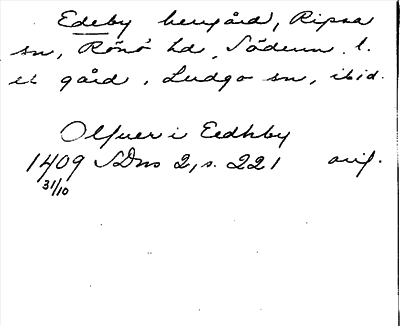 Edeby herrgård, Ripsa
sn, Rönö hd, Söderm. l.
el gård, Ludgo sn, ibid.
Olfuer i Eedhby
1409 SDns 2, s. 221 orig.
31/10